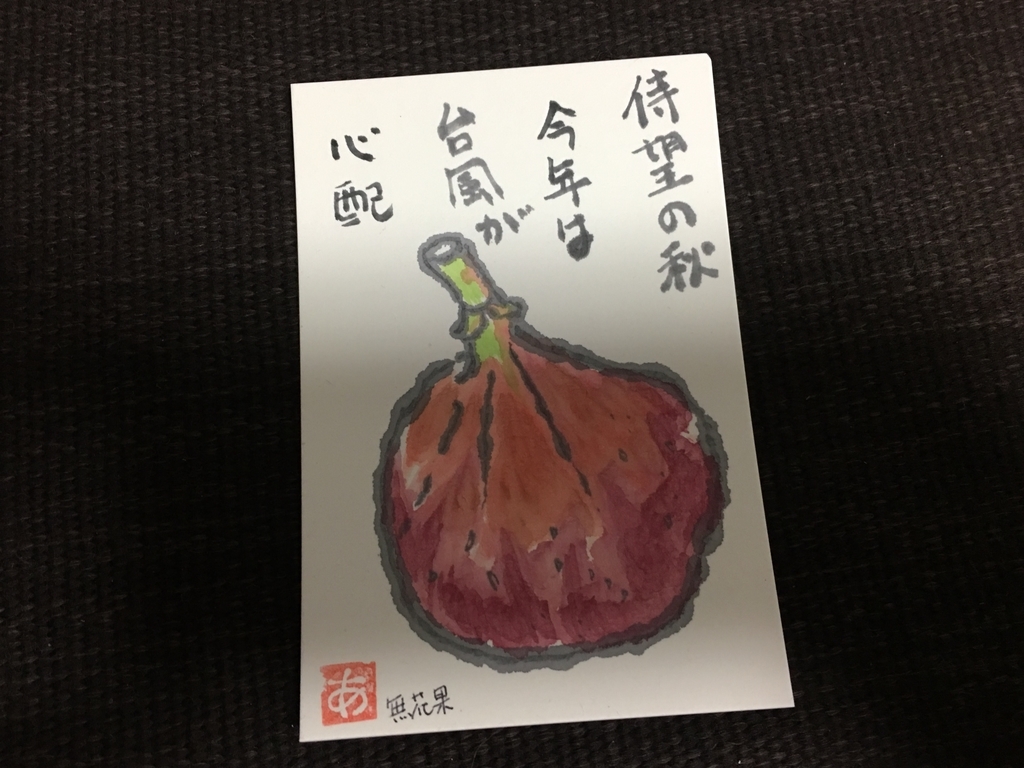 待望の秋
今年は
台風が
心配
あ
無花果